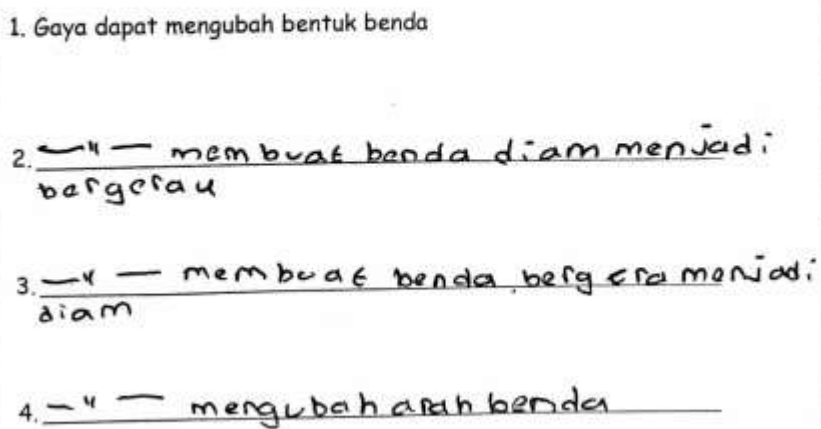 1. Gaya dapat mengubah bentuk benda
2. —"— membuat benda diam menjadi
bergerak
3. —"— membuat benda bergera menjadi
diam
4. —"— mengubah arah benda